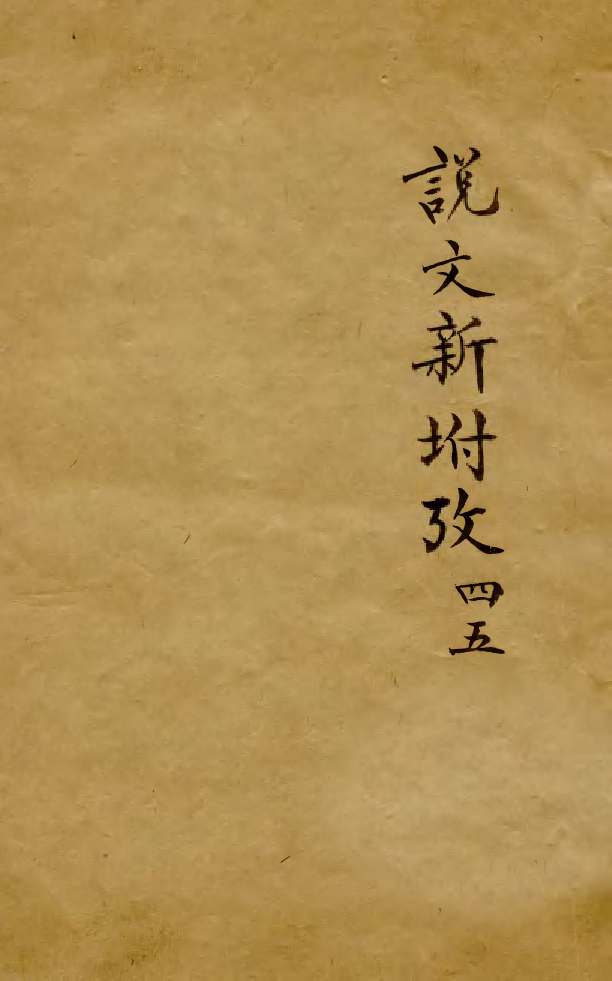 説文新坿攷四五